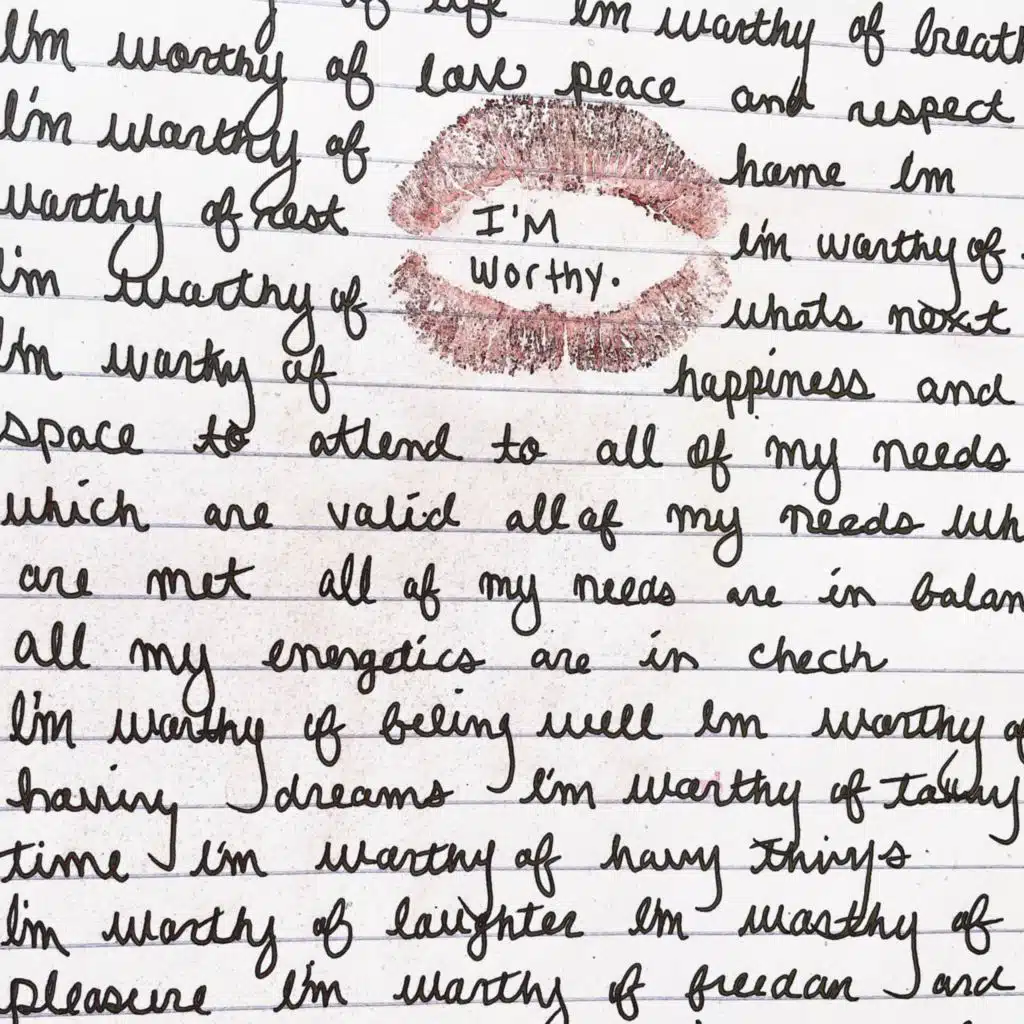 of life Im worthy of breath
I'm worthy of love peace and respect
I'm worthy of home Im
worthy of rest I'm worthy of
I'M
worthy.
I'm worthy of whats next
I'm worthy of happiness and
space to attend to all of my needs
which are valid all of my needs wh
are met all of my needs are in balan
all my energetics are in check
I'm worthy of being well Im worthy of
having dreams I'm worthy of taking
time I'm worthy of having things
I'm worthy of laughter Im worthy of
pleasure I'm worthy of freedom and